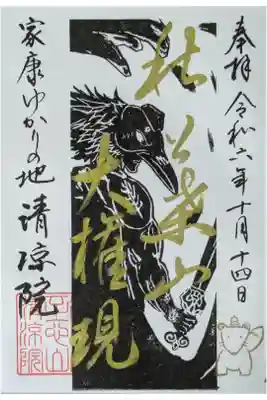 奉拝 令和六年十月十四日
秋葉山
大権現
家康ゆかりの地 清涼院